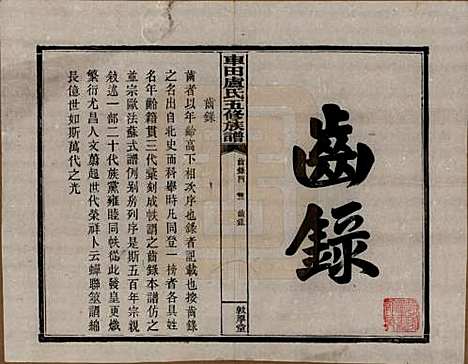 齒錄
車田盧氏五修族譜
敦學堂
齒錄
齒者以年齡高下相次序也錄者記載也按齒錄
之名出自北史而科舉時凡同登一榜者各具姓
名年齡籍貫三代彙刻成帙謂之齒錄本譜仿之
並宗歐法蘇式譜例別房列序是斯五百年宗親
敍述一部二十代族黨雍睦同帙從此發皇更熾
繁衍尤昌人文蔚起世代榮祥卜云蟬聯筮謂綿
長億世如斯萬代之光